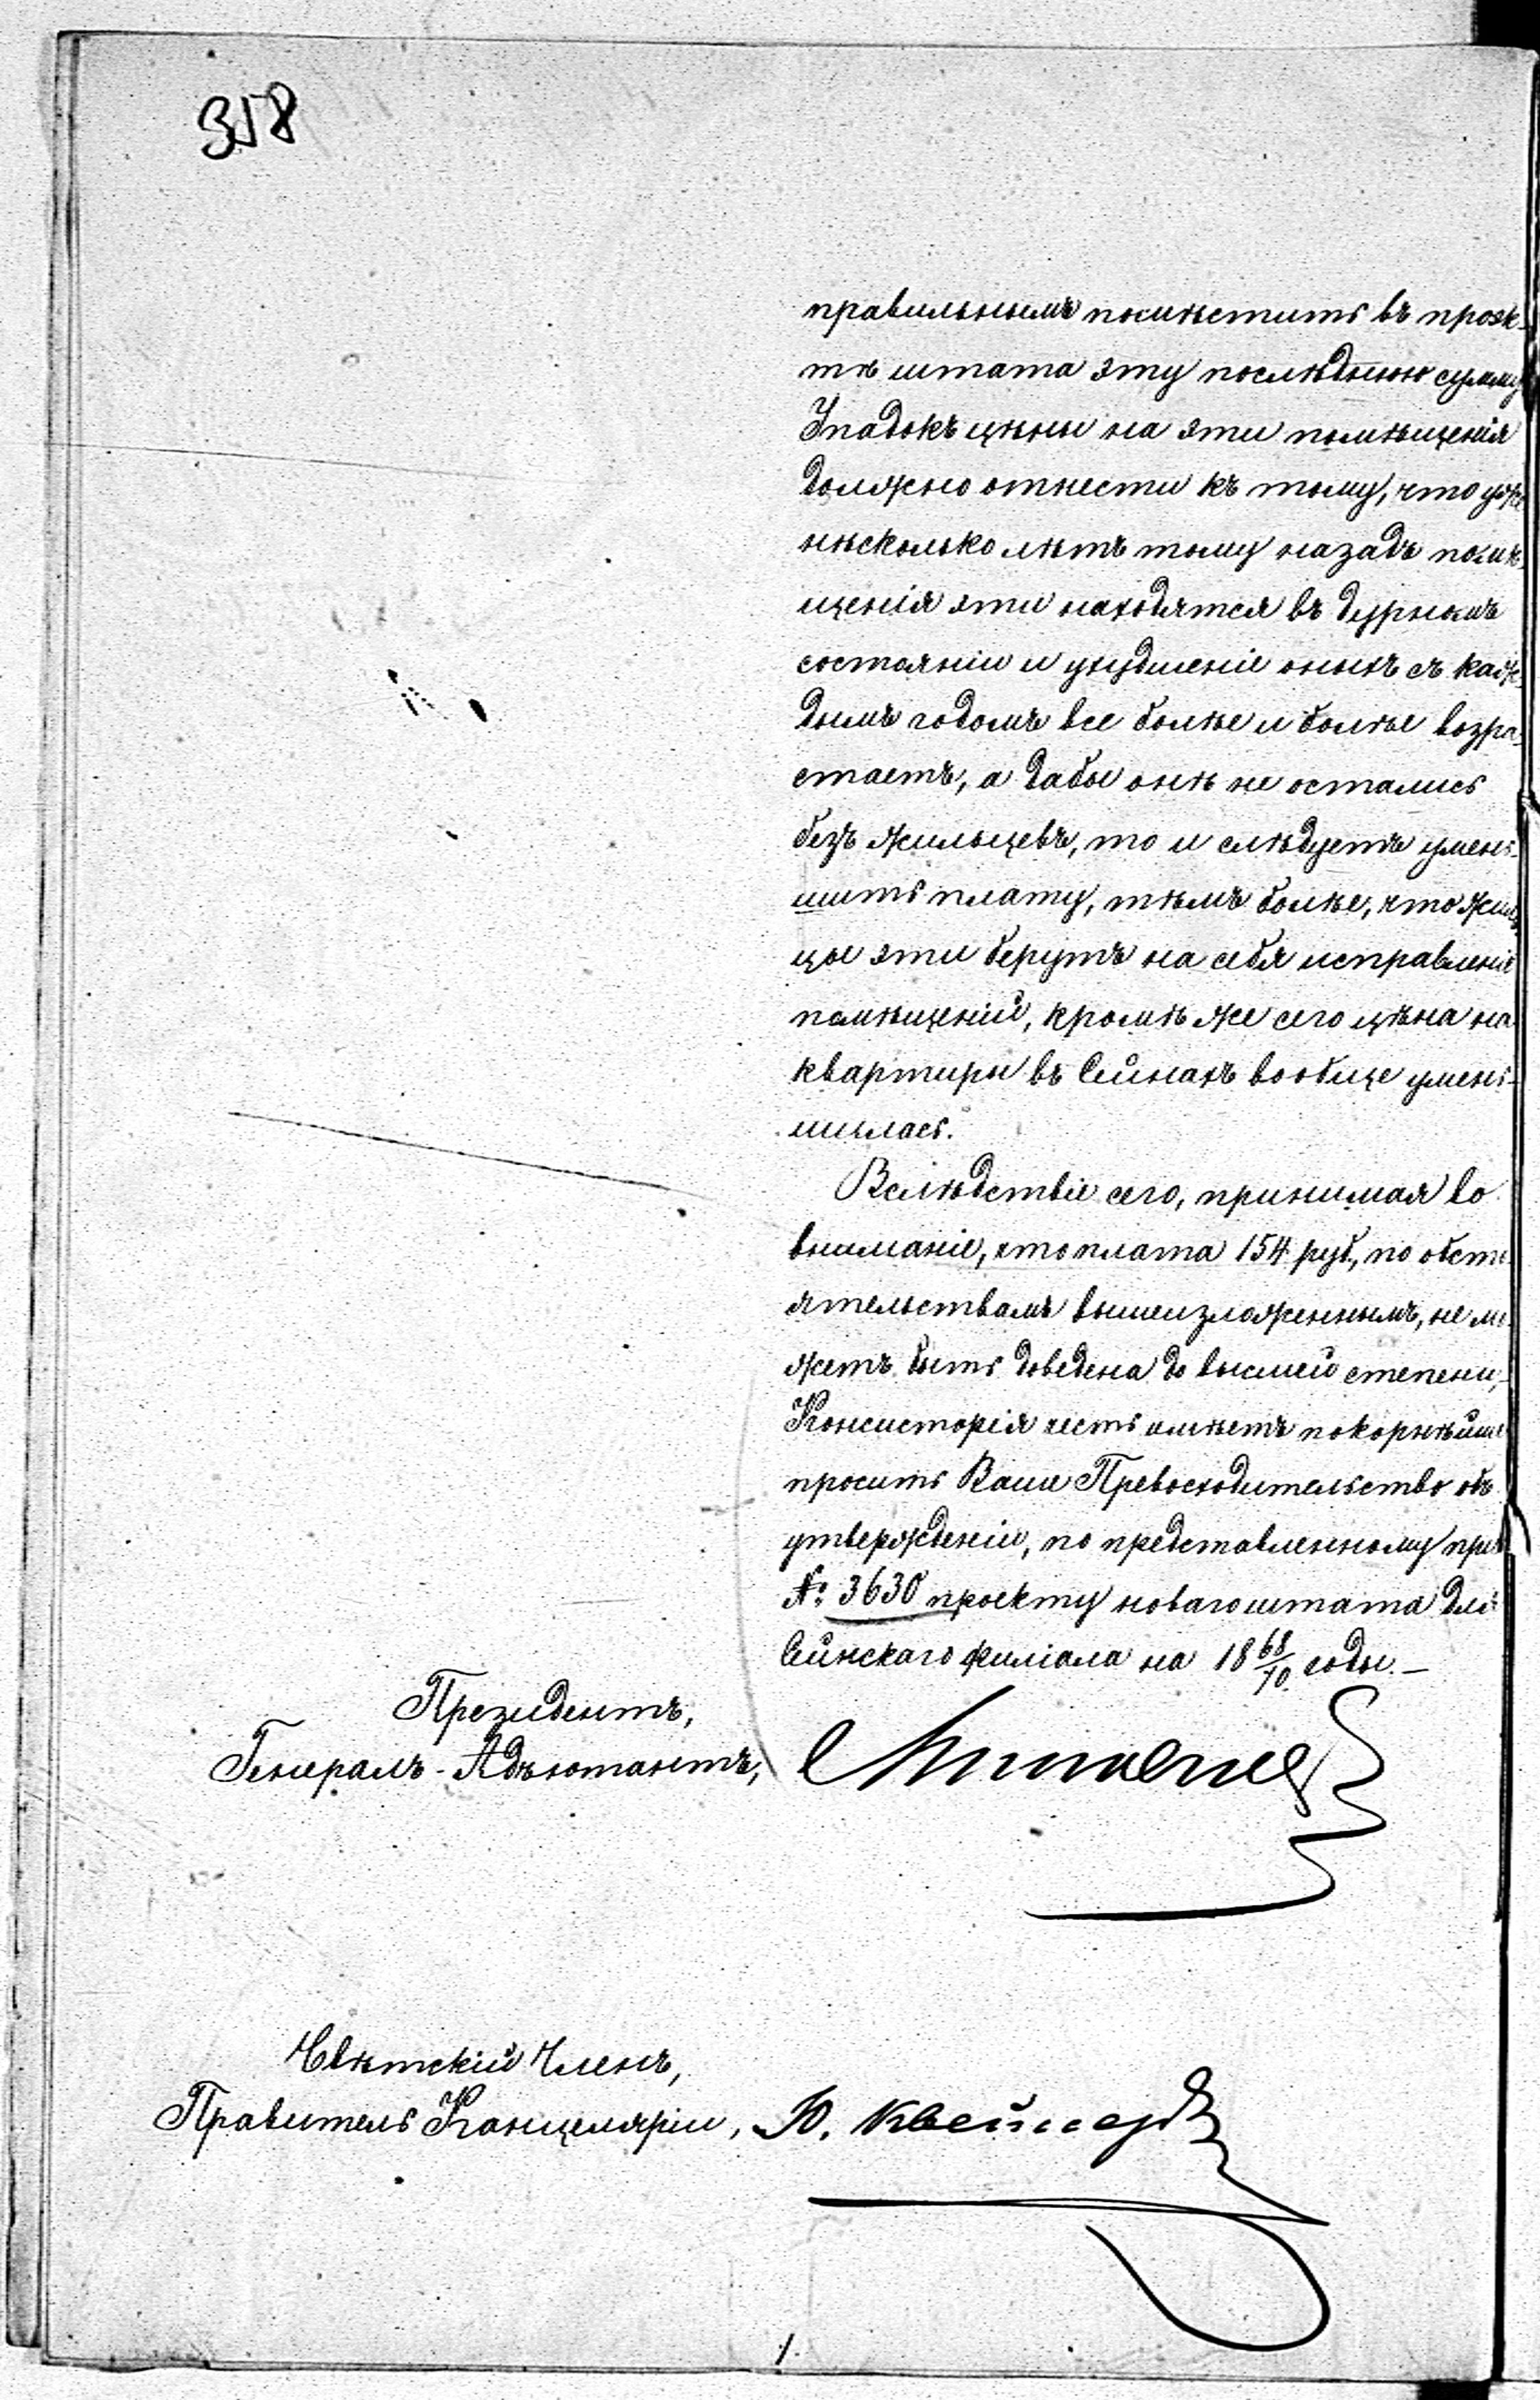 358
правильнымъ помѣстить въ проэк-
тѣ штата эту послѣднюю сумму
Упадокъ цѣны на эти помѣщенія
должно отнести къ тому, что уже
нѣсколько лѣтъ тому назадъ помѣ-
щенія эти находятся въ дурномъ
состояніи и ухудшеніе оныхъ съ каж-
дымъ годомъ все болѣе и болѣе возра-
стаетъ, а дабы онѣ не остались
безъ жильцевъ, то и слѣдуетъ умень-
шить плату, тѣмъ болѣе, что жиль-
цы эти берутъ на себя исправленіе
помѣщеній, кромѣ же сего цѣна на
квартиры въ Сейнахъ вообще умень-
шилась.
Вслѣдствіе сего, принимая во
вниманіе, что плата 154 руб., по обсто-
ятельствамъ вышеизложеннымъ, не мо-
жетъ быть доведена до высшей степени,-
Консисторія честь имѣетъ покорнѣйше
просить Ваше Превосходительство объ
утвержденіи, по представленному при
№ 3630 проекту новаго штата для
Сейнскаго филіала на 18 68/70 годы.-
Президентъ,
Генералъ-Адъютантъ,
Свѣтскій Членъ,
Правитель Канцеляріи, Ю.